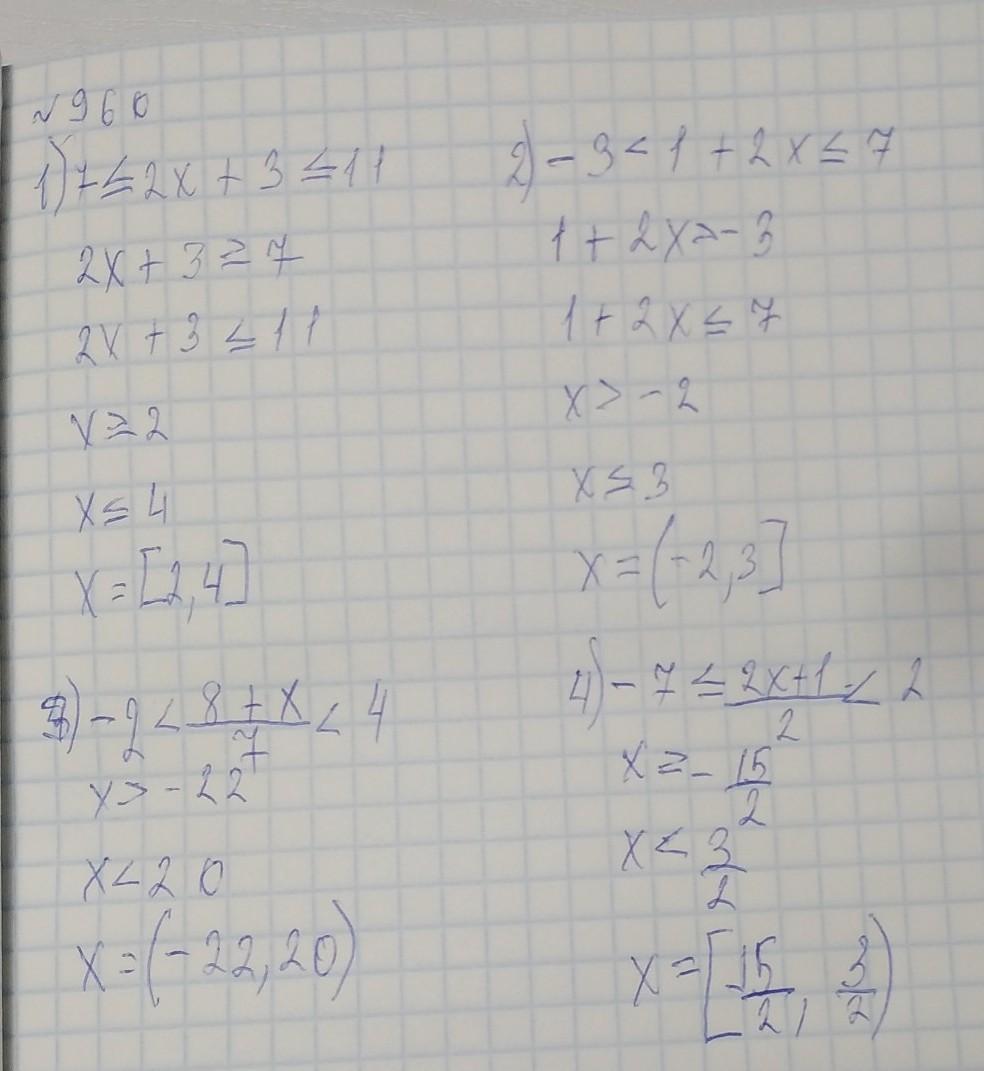 №960
1) 7 ≤ 2x + 3 ≤ 11
2x + 3 ≥ 7
2x + 3 ≤ 11
x ≥ 2
x ≤ 4
x = [2,4]
2) - 3 < 1 + 2x ≤ 7
1 + 2x > - 3
1 + 2x ≤ 7
x > - 2
x ≤ 3
x = (-2,3]
3) - 2 < (8 + x)/7 < 4
x > - 22
x < 20
x = (-22,20)
4) - 7 ≤ (2x+1)/2 < 2
x ≥ - 15/2
x < 3/2
x = [-15/2, 3/2)